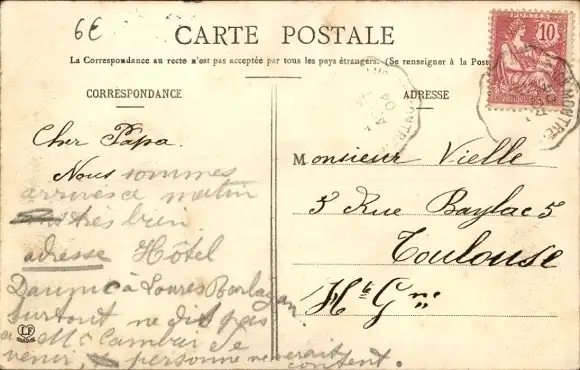 6€
CARTE POSTALE
La Correspondance au recto n'est pas acceptée par tous les pays étrangers. (Se renseigner à la Poste
CORRESPONDANCE
Cher Papa.
Nous sommes
arrivés ce matin
très bien
adresse Hôtel
à Loures Barbazan
surtout ne dit pas
a Mr de
venir, personne ne serait
content.
LF
ADRESSE
Monsieur Vielle
5 Rue Baylac 5
Toulouse
Hte Gne
POSTES
10
MONTRE